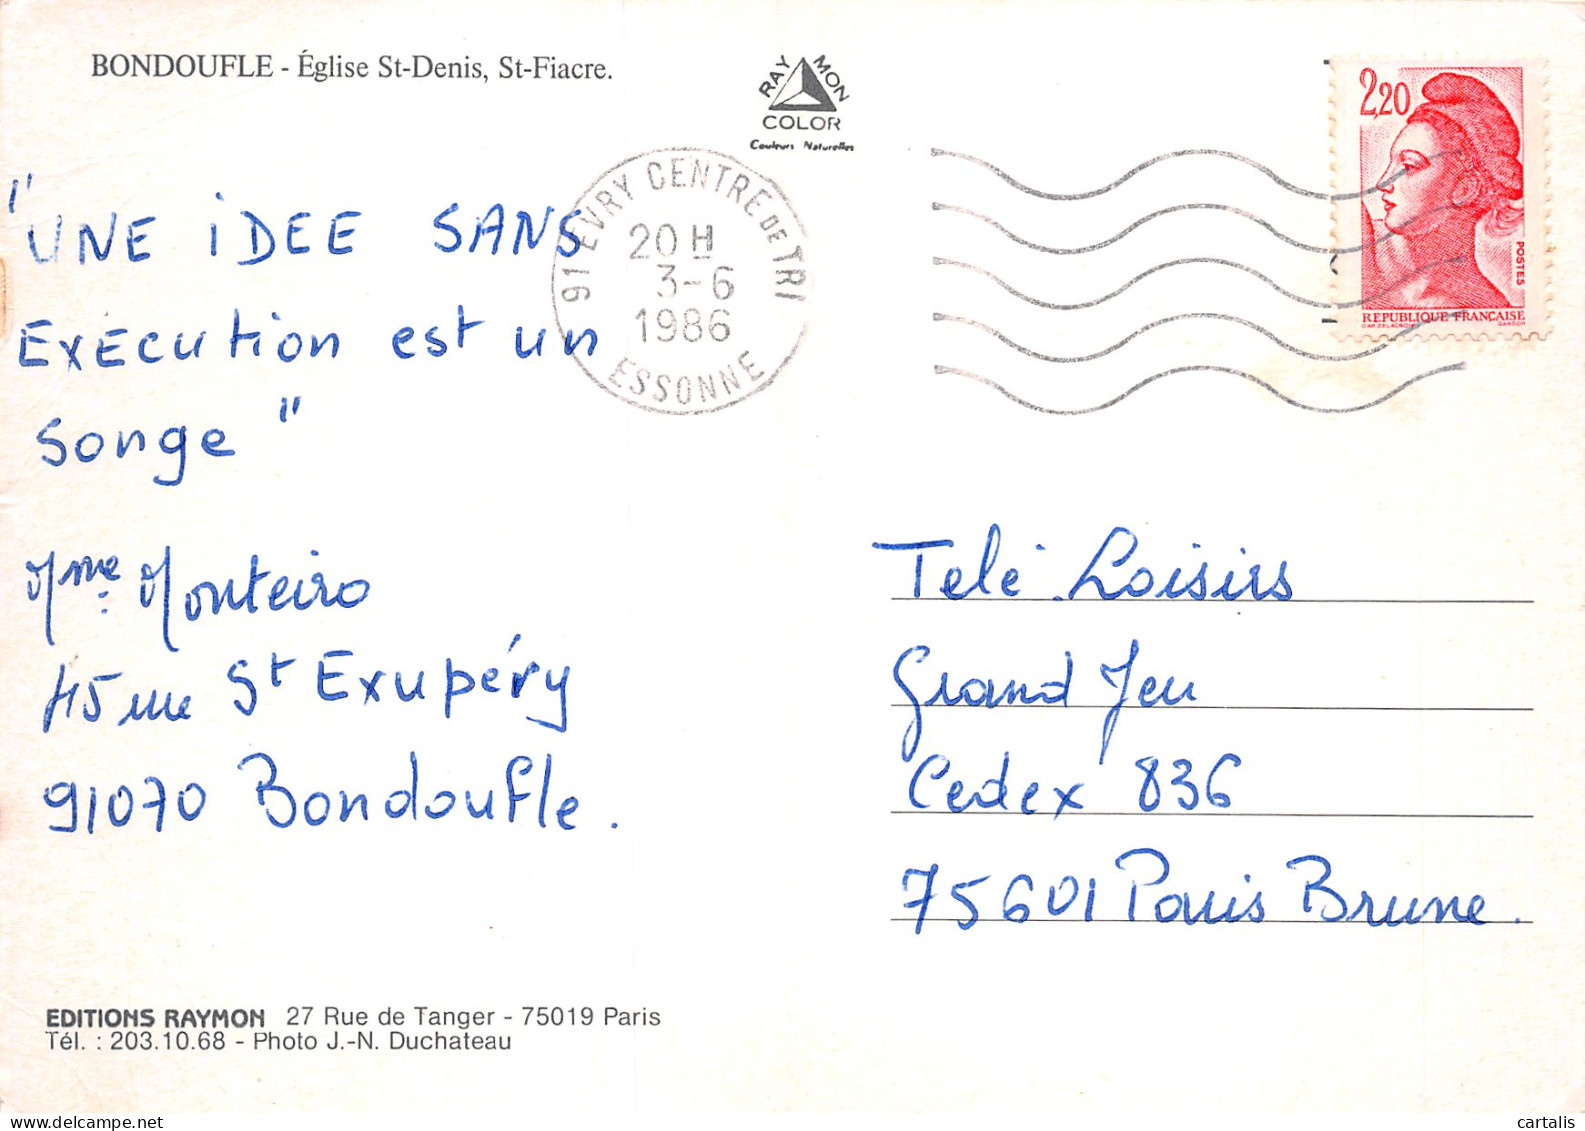 BONDOUFLE - Église St-Denis, St-Fiacre.
RAYMON
COLOR
Couleurs Naturelles
2,20
POSTES
REPUBLIQUE FRANÇAISE
D'AP. DELACROIX GANDON
91 EVRY CENTRE DE TRI
20 H
3-6
1986
ESSONNE
"UNE iDEE SANS
EXECUtion est un
songe"
Mme. Monteiro
45 rue St Exupéry
91070 Bondoufle.
Telé Loisirs
Grand Jeu
Cedex 836
75601 Paris Brune.
EDITIONS RAYMON 27 Rue de Tanger - 75019 Paris
Tél. : 203.10.68 - Photo J.-N. Duchateau
cartalis